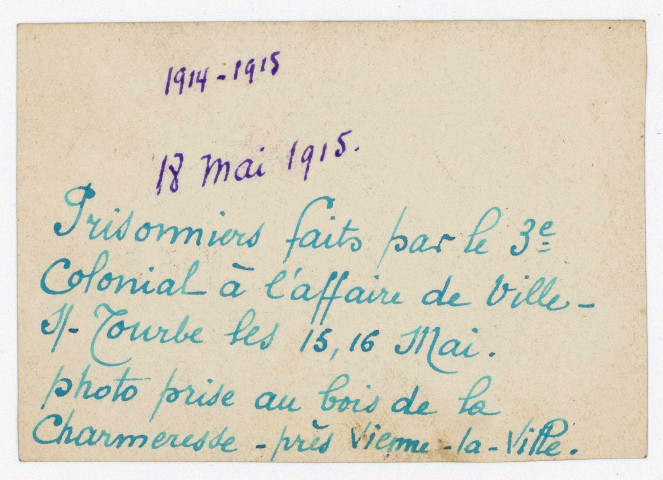 1914-1915
18 Mai 1915.
Prisonniers faits par le 3e
Colonial à l'affaire de Ville-
s/- Tourbe les 15, 16 Mai.
photo prise au bois de la
Charmeresse - près Vienne-la-Ville.